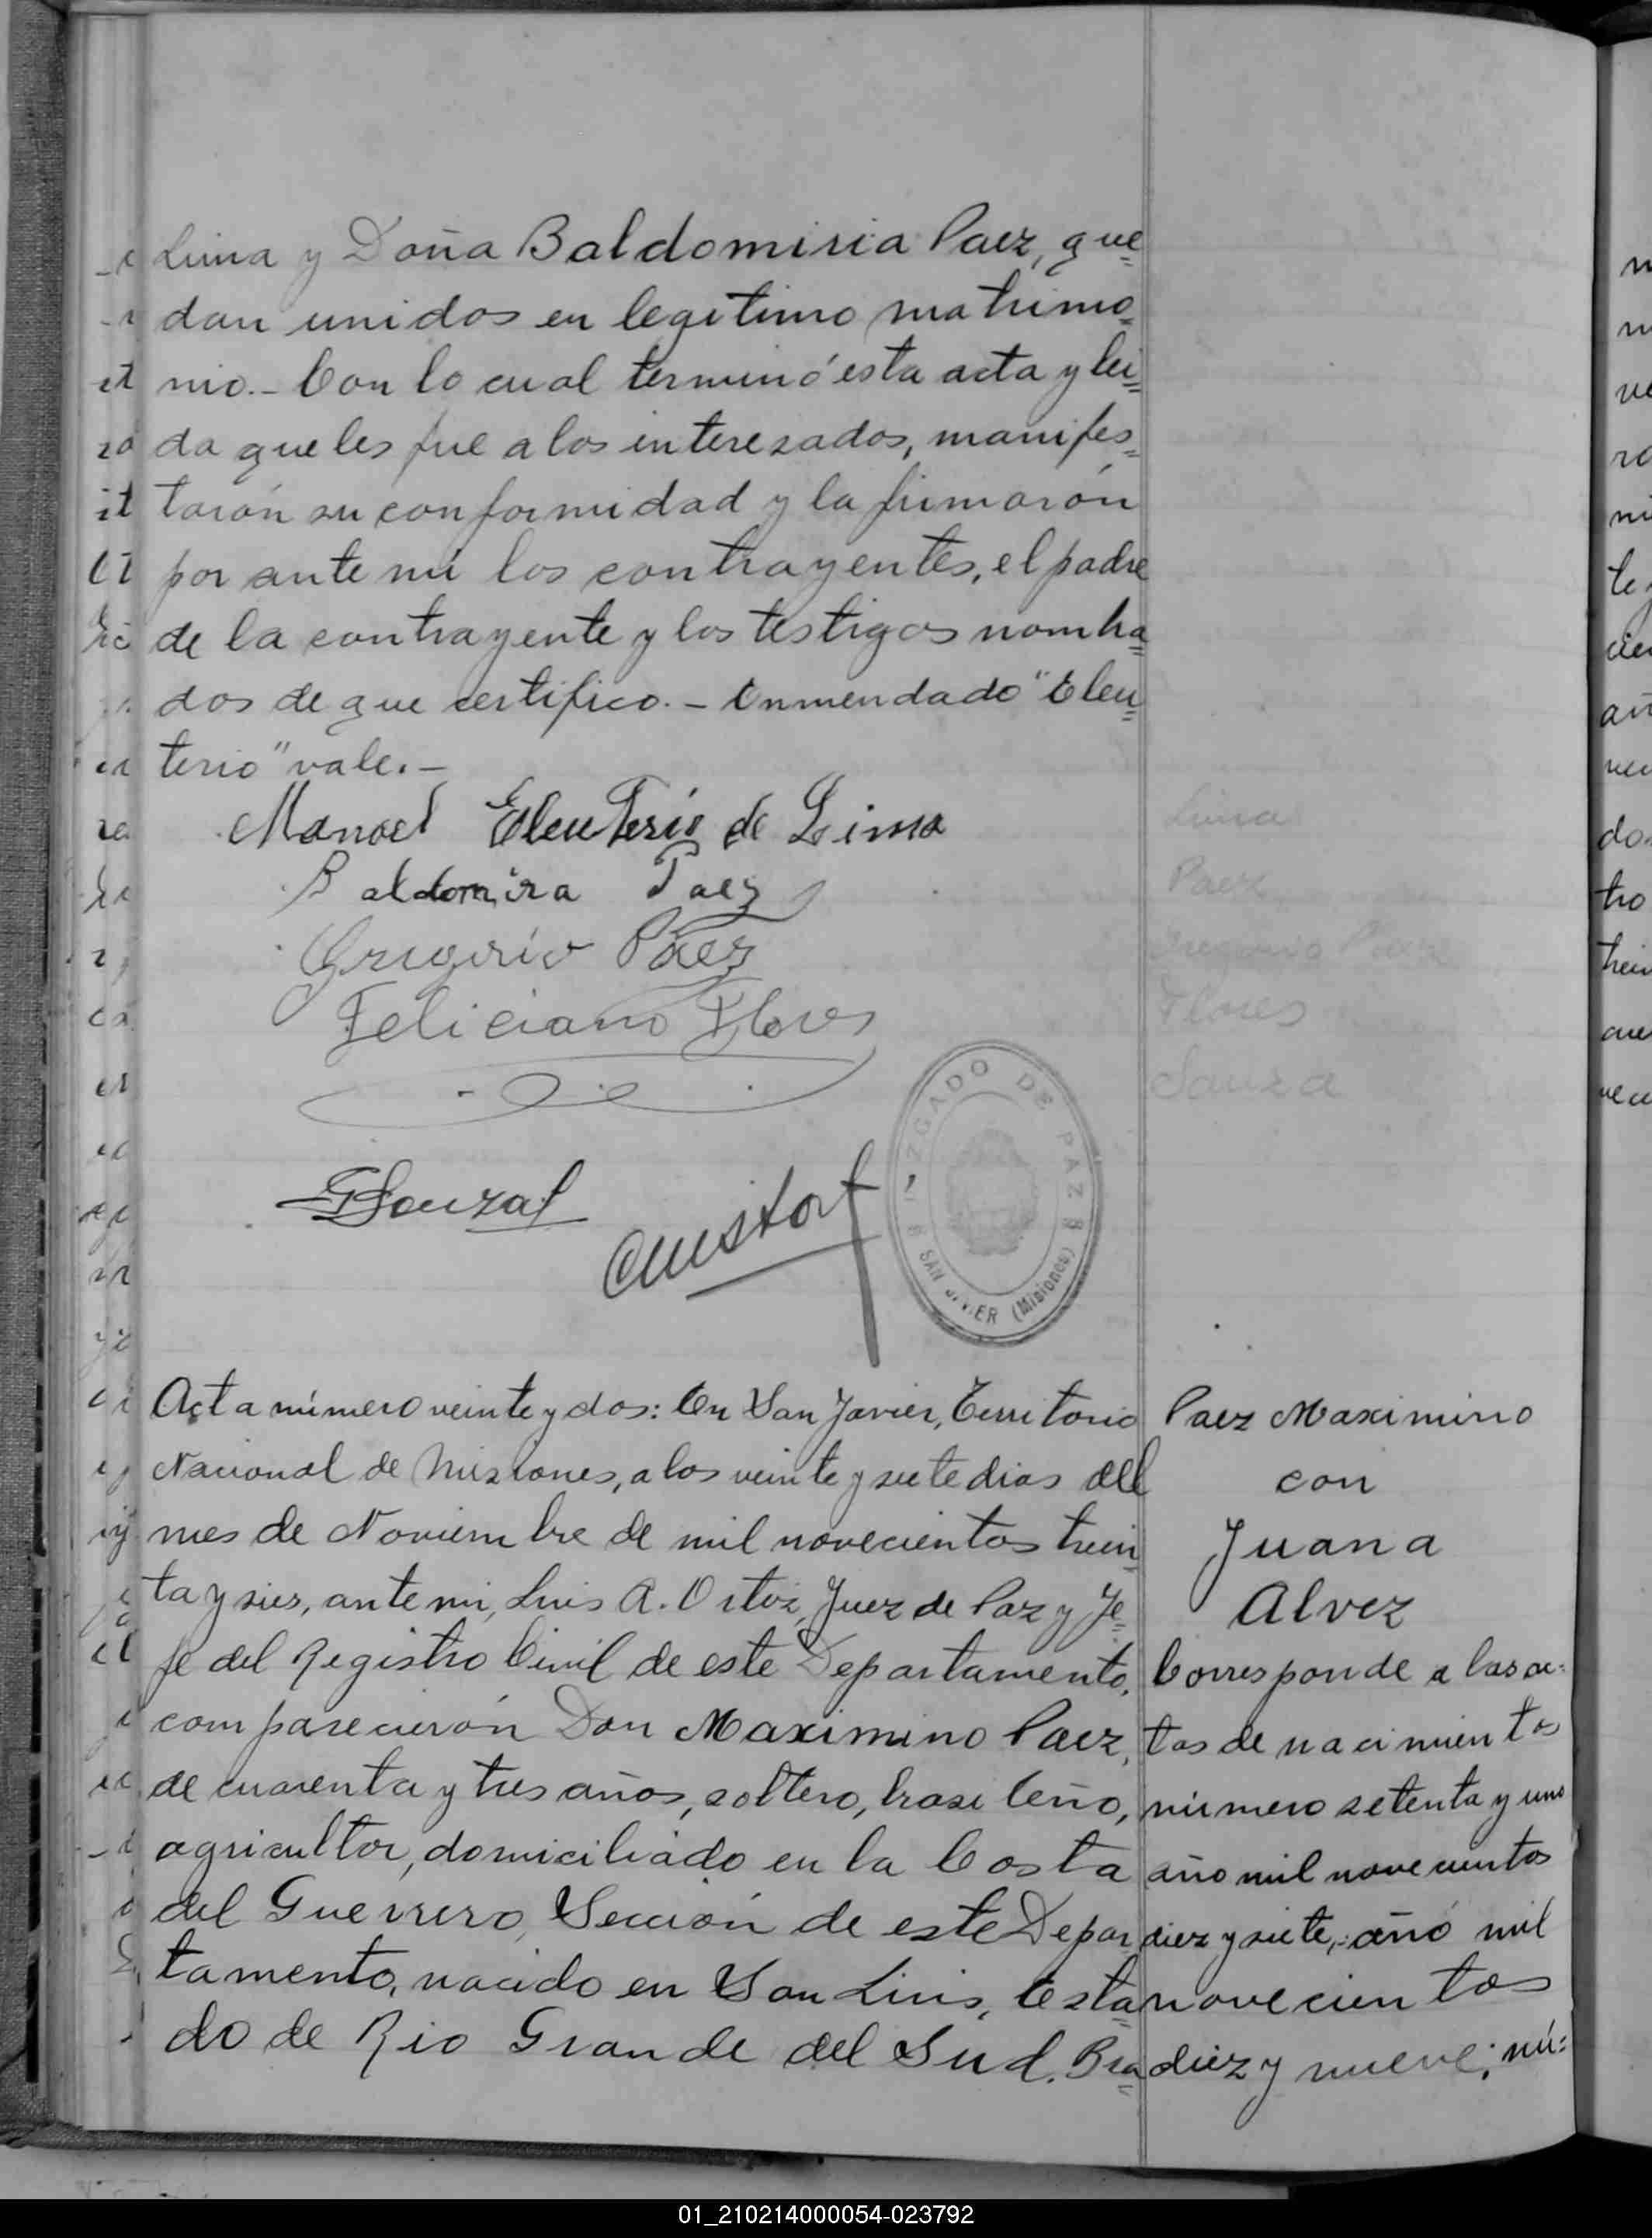 Lima y Doña Baldomiria Paez, que=
dan unidos en legitimo matrimo=
nio.- Con lo cual terminó esta acta y lei=
da que les fue a los interezados, manifes=
tarón su conformidad y la firmarón
por ante mi los contrayentes, el padre
de la contrayente y los testigos nombra=
dos de que certifico.- Enmendado "Eleu=
terio" vale.-
Manoel Eleuterio de Lima
Baldomira Paez
Gregorio Páez
Feliciano Flores
Lima
Paez
Gregorio Paez
Flores
Souza
JUZGADO DE PAZ
SAN JAVIER (Misiones)
Acta número veinte y dos: En San Javier, Territorio
Nacional de Misiones, a los veinte y siete dias del
mes de Noviembre de mil novecientos trein
ta y seis, ante mi, Luis A. Ortiz, Juez de Paz y Je=
fe del Registro Civil de este Departamento,
comparecierón Don Maximino Paez,
de cuarenta y tres años, soltero, brasileño,
agricultor, domiciliado en la Costa
del Guerrero, Sección de este Depar
tamento, nacido en San Luis, Esta=
do de Rio Grande del Sud, Bra=
Paez Maximino
con
Juana
Alvez
Corresponde a las ac=
tas de nacimientos
número setenta y uno
año mil novecientos
diez y siete, año mil
novecientos
diez y nueve; nú=
01_210214000054-023792